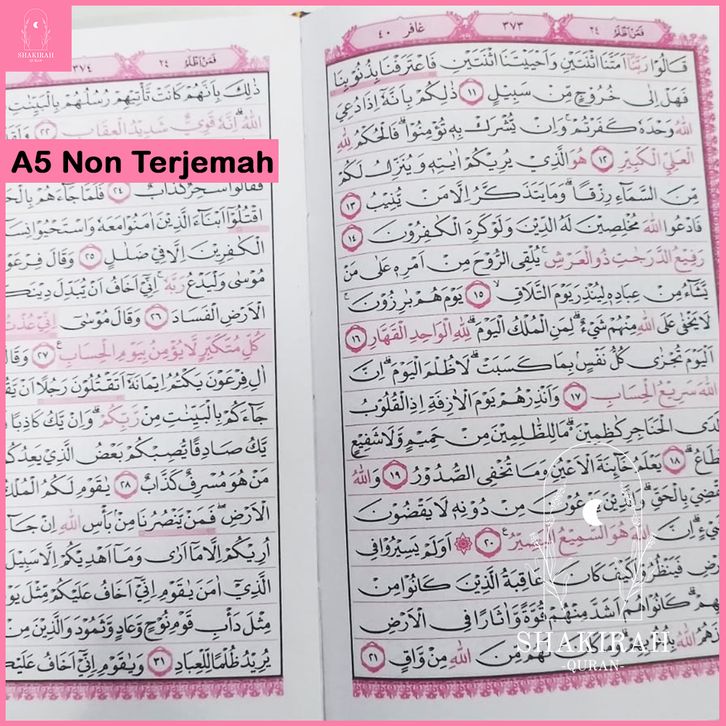 SHAKIRAH
-QURAN-
A5 Non Terjemah
فَمَنْ اَظْلَمُ ٢٤
٣٧٣
غافر ٤٠
قَالُوْا رَبَّنَآ اَمَتَّنَا اثْنَتَيْنِ وَاَحْيَيْتَنَا اثْنَتَيْنِ فَاعْتَرَفْنَا بِذُنُوْبِنَا
فَهَلْ اِلٰى خُرُوْجٍ مِّنْ سَبِيْلٍ ١١ ذٰلِكُمْ بِاَنَّهٗٓ اِذَا دُعِيَ
اللّٰهُ وَحْدَهٗ كَفَرْتُمْ ۚ وَاِنْ يُّشْرَكْ بِهٖ تُؤْمِنُوْا ۗ فَالْحُكْمُ لِلّٰهِ
الْعَلِيِّ الْكَبِيْرِ ١٢ هُوَ الَّذِيْ يُرِيْكُمْ اٰيٰتِهٖ وَيُنَزِّلُ لَكُمْ
مِّنَ السَّمَاۤءِ رِزْقًا ۗ وَمَا يَتَذَكَّرُ اِلَّا مَنْ يُّنِيْبُ ١٣
فَادْعُوا اللّٰهَ مُخْلِصِيْنَ لَهُ الدِّيْنَ وَلَوْ كَرِهَ الْكٰفِرُوْنَ ١٤
رَفِيْعُ الدَّرَجٰتِ ذُو الْعَرْشِ ۚ يُلْقِى الرُّوْحَ مِنْ اَمْرِهٖ عَلٰى مَنْ
يَّشَاۤءُ مِنْ عِبَادِهٖ لِيُنْذِرَ يَوْمَ التَّلَاقِ ۙ ١٥ يَوْمَ هُمْ بَارِزُوْنَ ۚ
لَا يَخْفٰى عَلَى اللّٰهِ مِنْهُمْ شَيْءٌ ۗ لِمَنِ الْمُلْكُ الْيَوْمَ ۗ لِلّٰهِ الْوَاحِدِ الْقَهَّارِ ١٦
اَلْيَوْمَ تُجْزٰى كُلُّ نَفْسٍۢ بِمَا كَسَبَتْ ۗ لَا ظُلْمَ الْيَوْمَ ۗ اِنَّ
اللّٰهَ سَرِيْعُ الْحِسَابِ ١٧ وَاَنْذِرْهُمْ يَوْمَ الْاٰزِفَةِ اِذِ الْقُلُوْبُ
لَدَى الْحَنَاجِرِ كٰظِمِيْنَ ۗ مَا لِلظّٰلِمِيْنَ مِنْ حَمِيْمٍ وَّلَا شَفِيْعٍ
يُّطَاعُ ۗ ١٨ يَعْلَمُ خَاۤىِٕنَةَ الْاَعْيُنِ وَمَا تُخْفِى الصُّدُوْرُ ١٩ وَاللّٰهُ
يَقْضِيْ بِالْحَقِّ ۗ وَالَّذِيْنَ يَدْعُوْنَ مِنْ دُوْنِهٖ لَا يَقْضُوْنَ
بِشَيْءٍ ۗ اِنَّ اللّٰهَ هُوَ السَّمِيْعُ الْبَصِيْرُ ٢٠ اَوَلَمْ يَسِيْرُوْا فِى
الْاَرْضِ فَيَنْظُرُوْا كَيْفَ كَانَ عَاقِبَةُ الَّذِيْنَ كَانُوْا مِنْ
قَبْلِهِمْ ۗ كَانُوْا هُمْ اَشَدَّ مِنْهُمْ قُوَّةً وَّاٰثَارًا فِى الْاَرْضِ
فَاَخَذَهُمُ اللّٰهُ لَهُمْ مِّنَ اللّٰهِ مِنْ وَّاقٍ ٢١
فَمَنْ اَظْلَمُ ٢٤
٣٧٤
ذٰلِكَ بِاَنَّهُمْ كَانَتْ تَّأْتِيْهِمْ رُسُلُهُمْ بِالْبَيِّنٰتِ
اللّٰهُ ۗ اِنَّهٗ قَوِيٌّ شَدِيْدُ الْعِقَابِ ٢٢
فَقَالُوْا سٰحِرٌ كَذَّابٌ ٢٤ فَلَمَّا جَاۤءَهُمْ
اقْتُلُوْٓا اَبْنَاۤءَ الَّذِيْنَ اٰمَنُوْا مَعَهٗ وَاسْتَحْيُوْا
الْكٰفِرِيْنَ اِلَّا فِيْ ضَلٰلٍ ٢٥ وَقَالَ فِرْعَوْنُ
مُوْسٰى وَلْيَدْعُ رَبَّهٗ ۚ اِنِّيْٓ اَخَافُ اَنْ يُّبَدِّلَ دِيْنَكُمْ
الْاَرْضِ الْفَسَادَ ٢٦ وَقَالَ مُوْسٰىٓ اِنِّيْ عُذْتُ
كُلِّ مُتَكَبِّرٍ لَّا يُؤْمِنُ بِيَوْمِ الْحِسَابِ ٢٧ وَقَالَ
اٰلِ فِرْعَوْنَ يَكْتُمُ اِيْمَانَهٗٓ اَتَقْتُلُوْنَ رَجُلًا اَنْ
جَاۤءَكُمْ بِالْبَيِّنٰتِ مِنْ رَّبِّكُمْ ۗ وَاِنْ يَّكُ كَاذِبًا
يَّكُ صَادِقًا يُّصِبْكُمْ بَعْضُ الَّذِيْ يَعِدُكُمْ
مَنْ هُوَ مُسْرِفٌ كَذَّابٌ ٢٨ يٰقَوْمِ لَكُمُ الْمُلْكُ
الْاَرْضِ ۖ فَمَنْ يَّنْصُرُنَا مِنْۢ بَأْسِ اللّٰهِ اِنْ
اُرِيْكُمْ اِلَّا مَآ اَرٰى وَمَآ اَهْدِيْكُمْ اِلَّا سَبِيْلَ
الَّذِيْٓ اٰمَنَ يٰقَوْمِ اِنِّيْٓ اَخَافُ عَلَيْكُمْ مِّثْلَ
مِثْلَ دَأْبِ قَوْمِ نُوْحٍ وَّعَادٍ وَّثَمُوْدَ وَالَّذِيْنَ مِنْ
يُرِيْدُ ظُلْمًا لِّلْعِبَادِ ٣١ وَيٰقَوْمِ اِنِّيْٓ اَخَافُ عَلَيْكُمْ
SHAKIRAH
-QURAN-